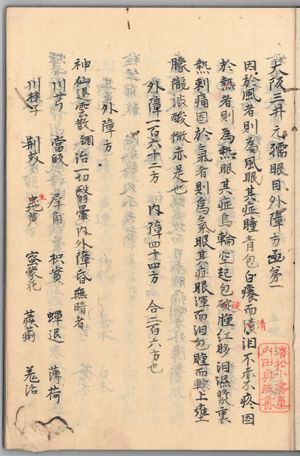 大阪三井元孺眼目外障方函第一
因於風者則為風眼其症腫青包白瘮而清泪不赤疼因
於熱者則為熱眼其症烏輪突起包硬腫紅泪湿裏
熱刺痛因於氣者則為氣眼其症眼渾而泪包腫而軟上壅
朦朧渋酸微赤是也
外障一百六十二方 内障四十四方 合二百六方也
外障方
神仙退雲散 調治一切翳雲内外障昏無睛者
川芎 當皈 犀角 枳實 蟬退 薄荷
川楝子 荊芥 地黄 蜜蒙花 蔓荊 羗活